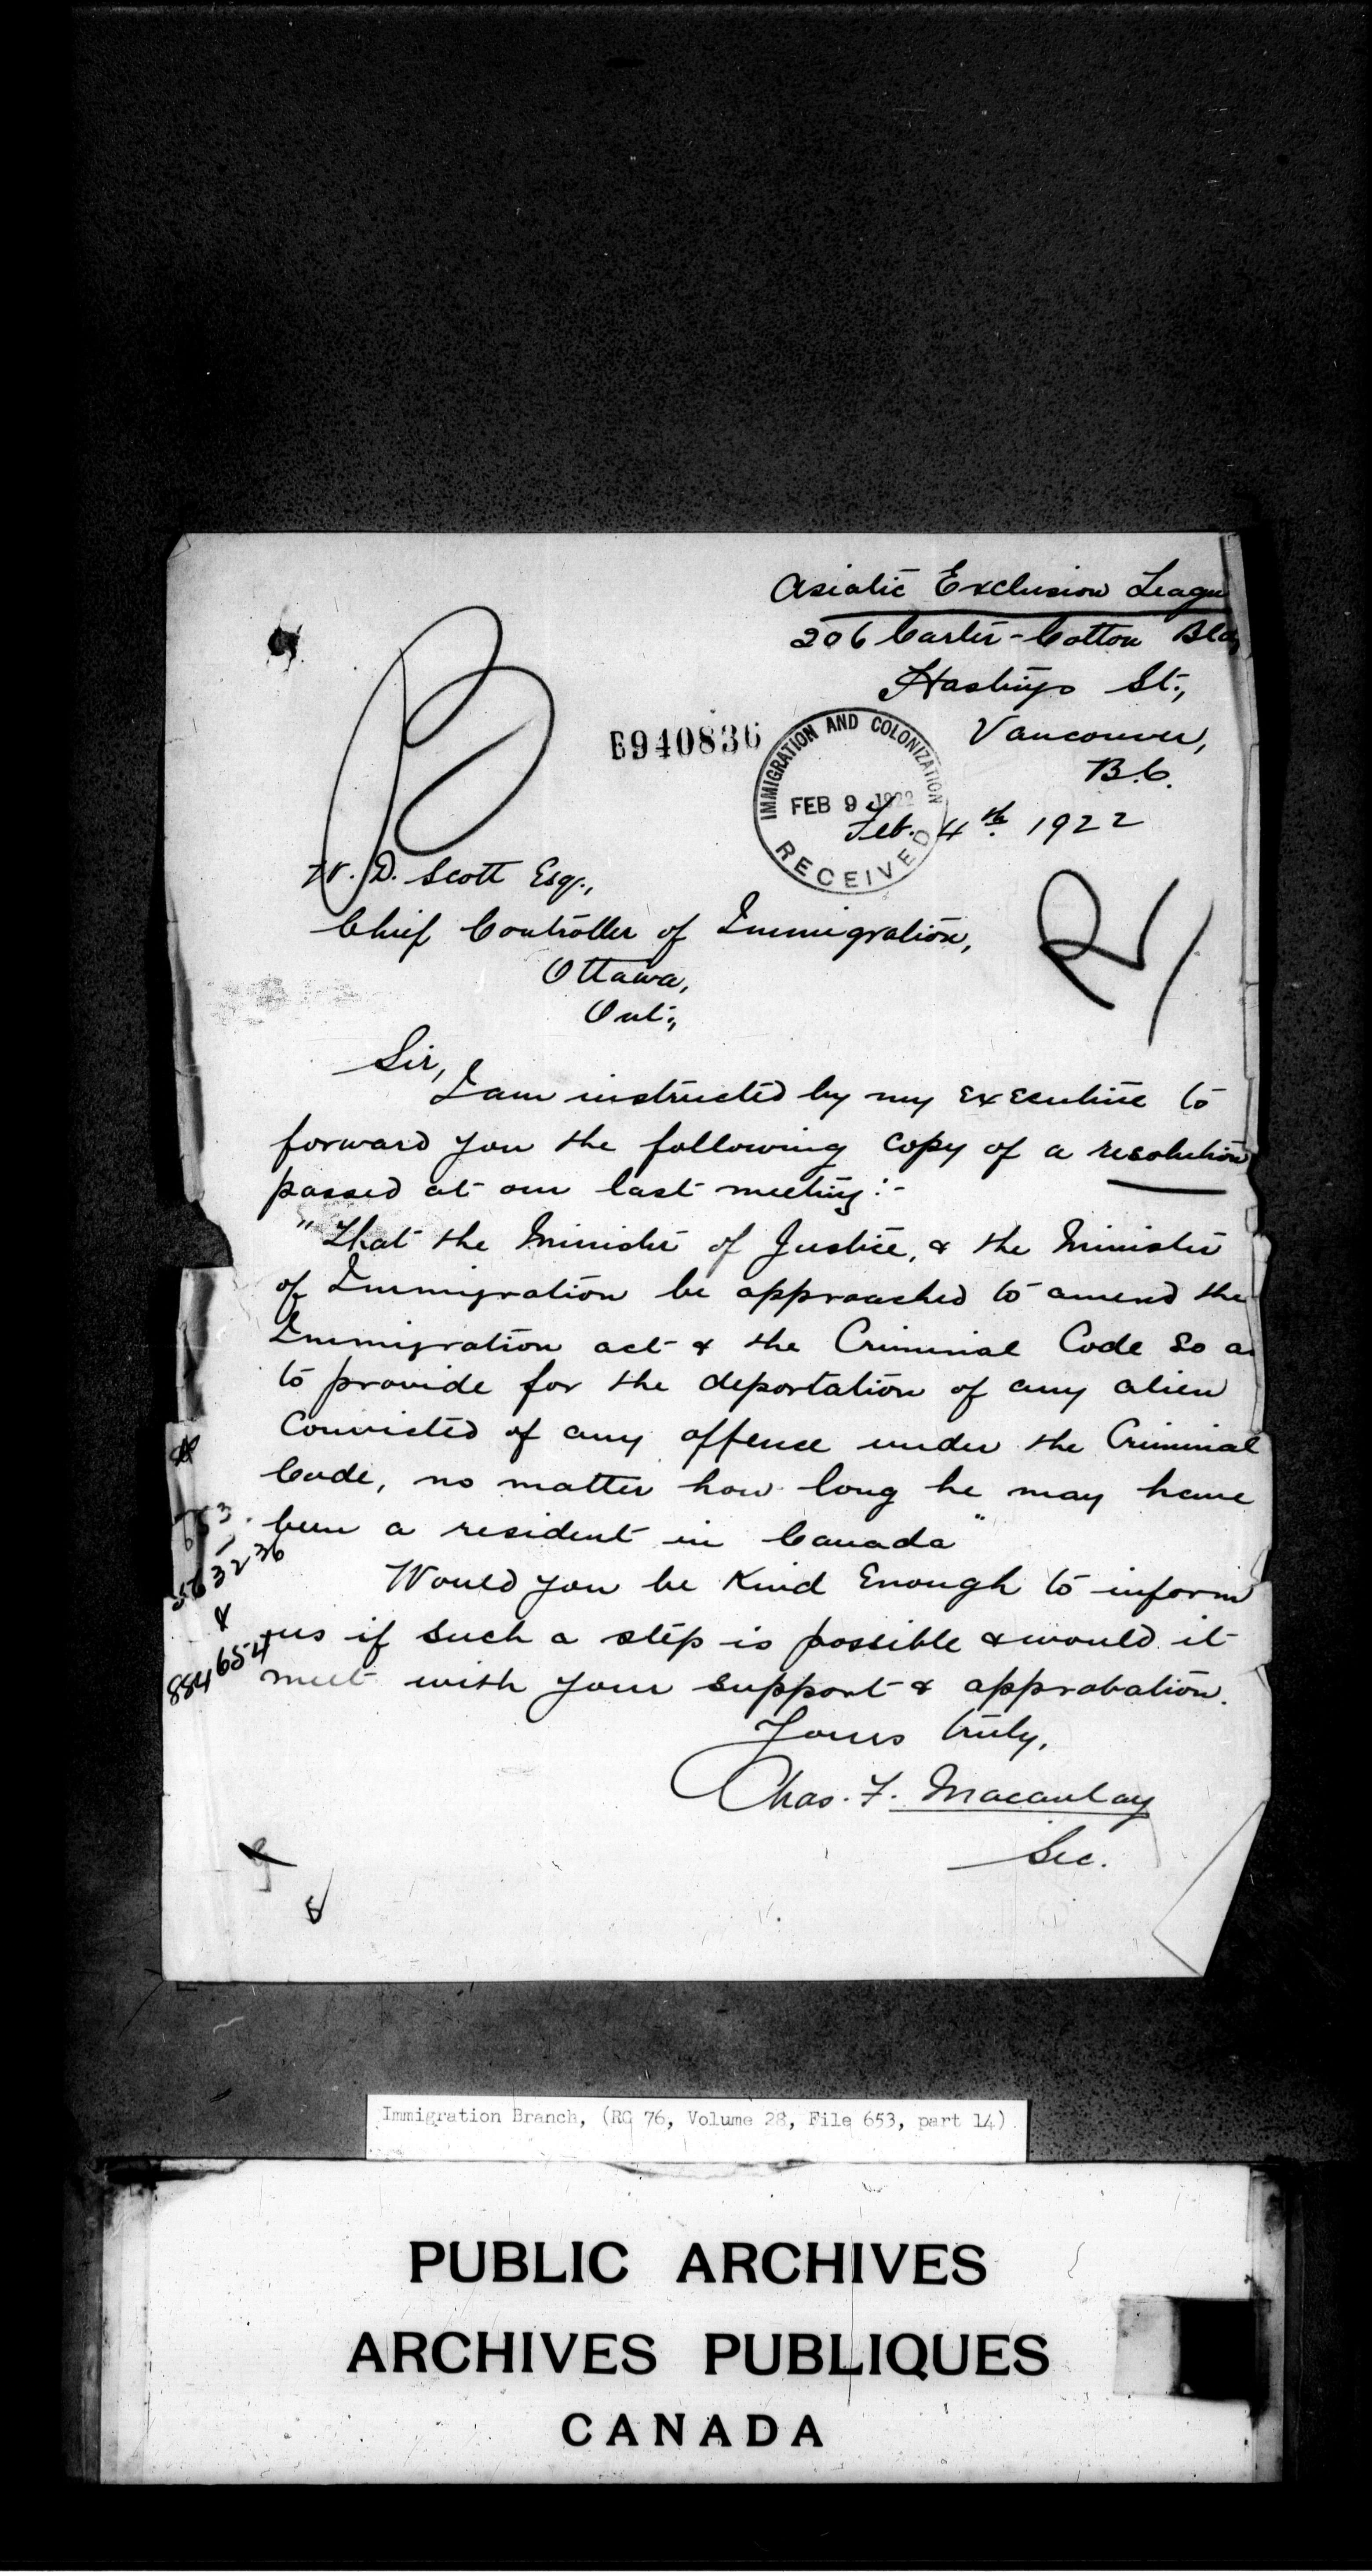 Asiatic Exclusion Leagu
206 Carter-Cotton Bldg
Hastings St.,
Vancouver,
B.C.
B940836
IMMIGRATION AND COLONIZATION
FEB 9 1922
RECEIVED
Feb. 4th. 1922
W. D. Scott Esq.,
Chief Controller of Immigration,
Ottawa,
Ont.,
Sir,
I am instructed by my Executive to
forward you the following copy of a resolution
passed at our last meeting:-
"That the Minister of Justice, & the Minister
of Immigration be approached to amend the
Immigration act & the Criminal Code so as
to provide for the deportation of any alien
convicted of any offence under the Criminal
Code, no matter how long he may have
been a resident in Canada"
653.
563236
&
884654
Would you be Kind Enough to inform
us if such a step is possible & would it
meet with your support & approbation.
Yours truly,
Chas. F. Macaulay
Sec.
Immigration Branch, (RG 76, Volume 28, File 653, part 14)
PUBLIC ARCHIVES
ARCHIVES PUBLIQUES
CANADA